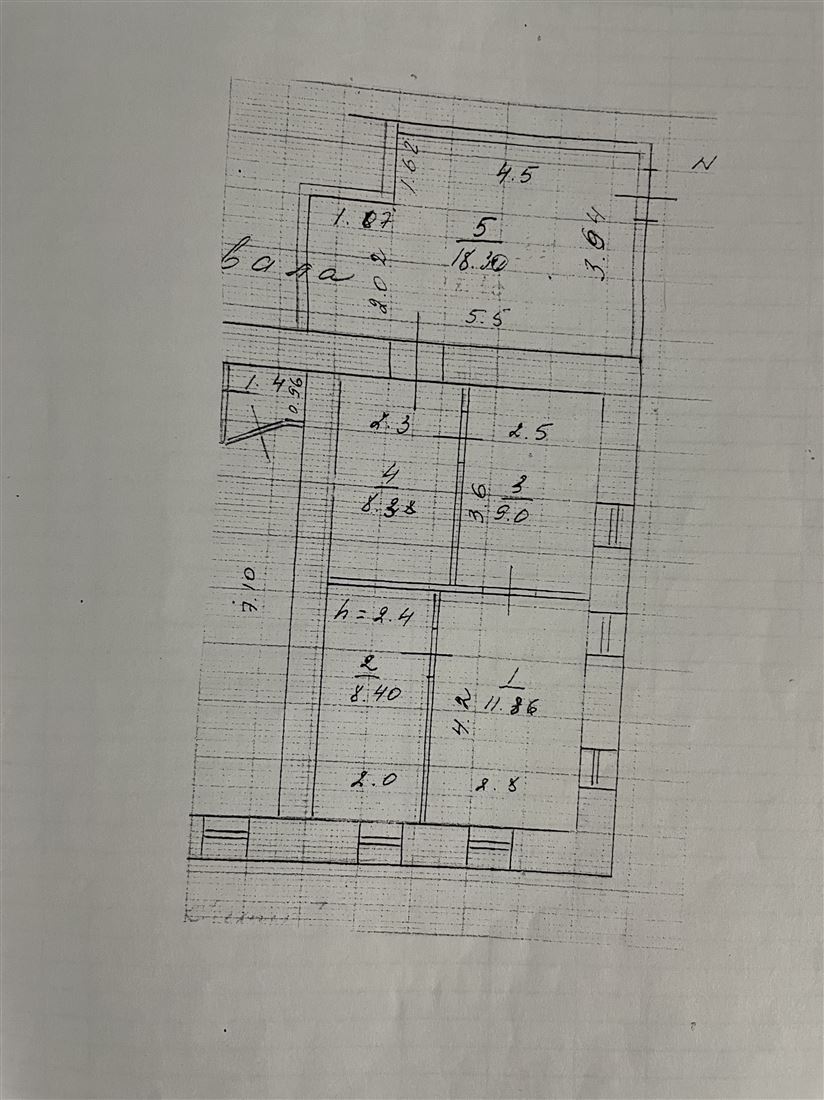 N
1.62
4.5
1.07
5
18.30
3.64
вала
2.02
5.5
1.4
0.96
2.3
2.5
4
8.38
3.6
3
9.0
7.10
h = 2.4
2
8.40
1
11.86
4.2
2.0
2.8